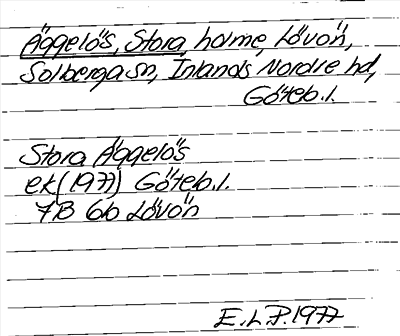 Äggelös, Stora, holme, Lövön,
Solberga sn, Inlands Nordre hd,
Göteb.l.
Stora Äggelös
ek(1977) Göteb.l.
7B 6b Lövön
E.L.P.1977